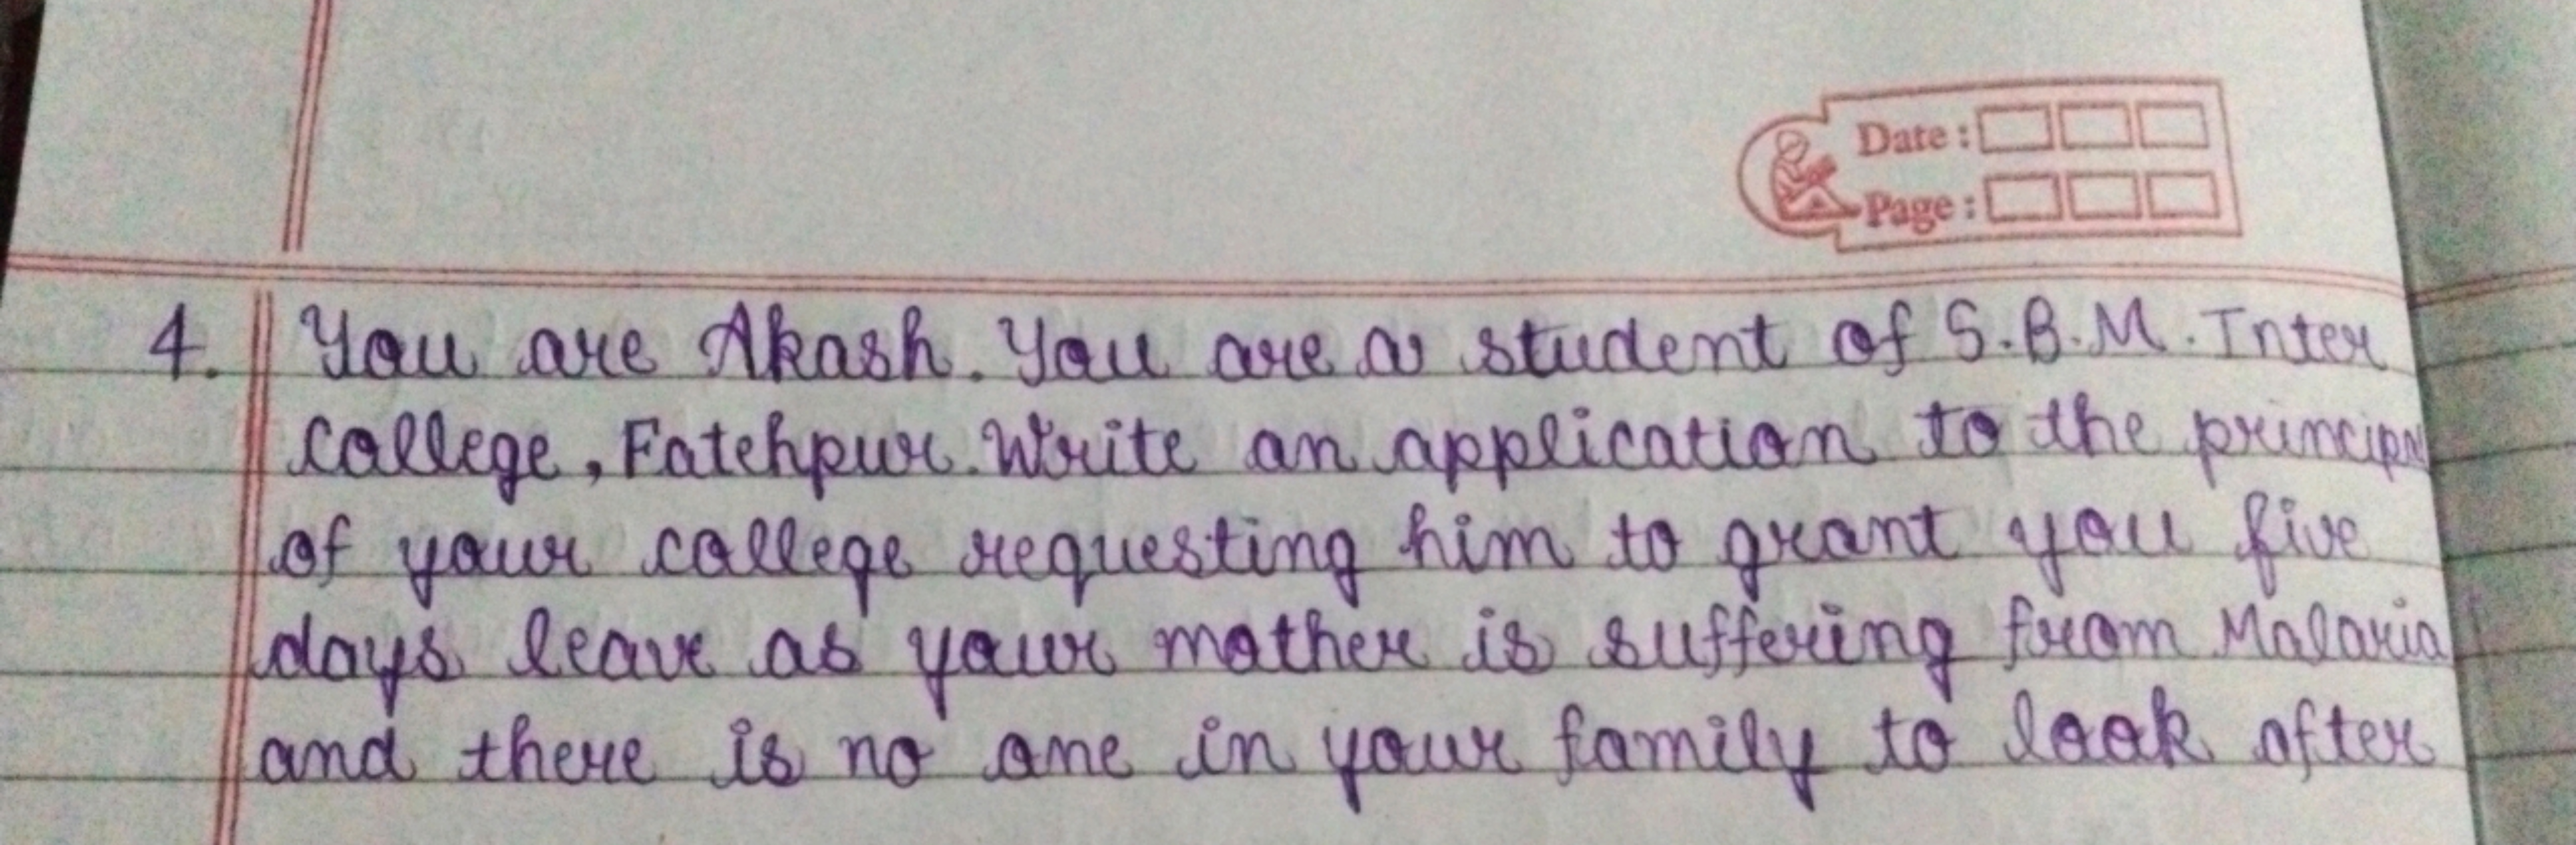 Date :
Page :
4. You are Akash. You are a student of S.B.M. Inter
college, Fatehpur. Write an application to the principal
of your college requesting him to grant you five
days leave as your mother is suffering from Malaria
and there is no one in your family to look after